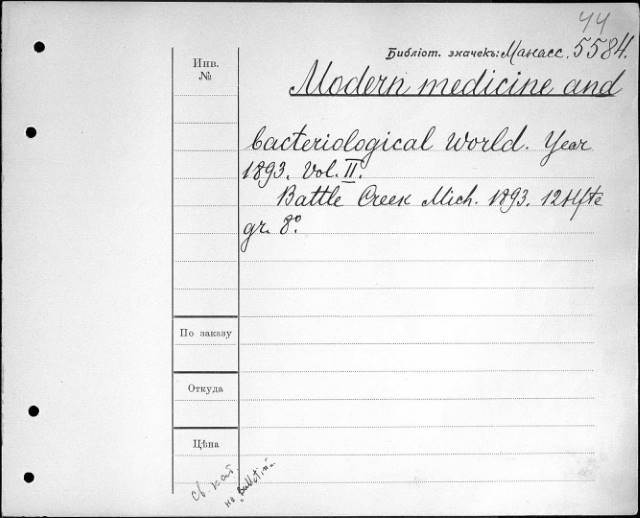 44
Библіот. значекъ: Манасс. 5584.
Инв.
№
Modern medicine and
bacteriological World. Year
1893. Vol. II.
Battle Creek Mich. 1893. 12 Hfte
gr. 8°.
По заказу
Откуда
Цѣна
св. кат.
на "Bulletin"